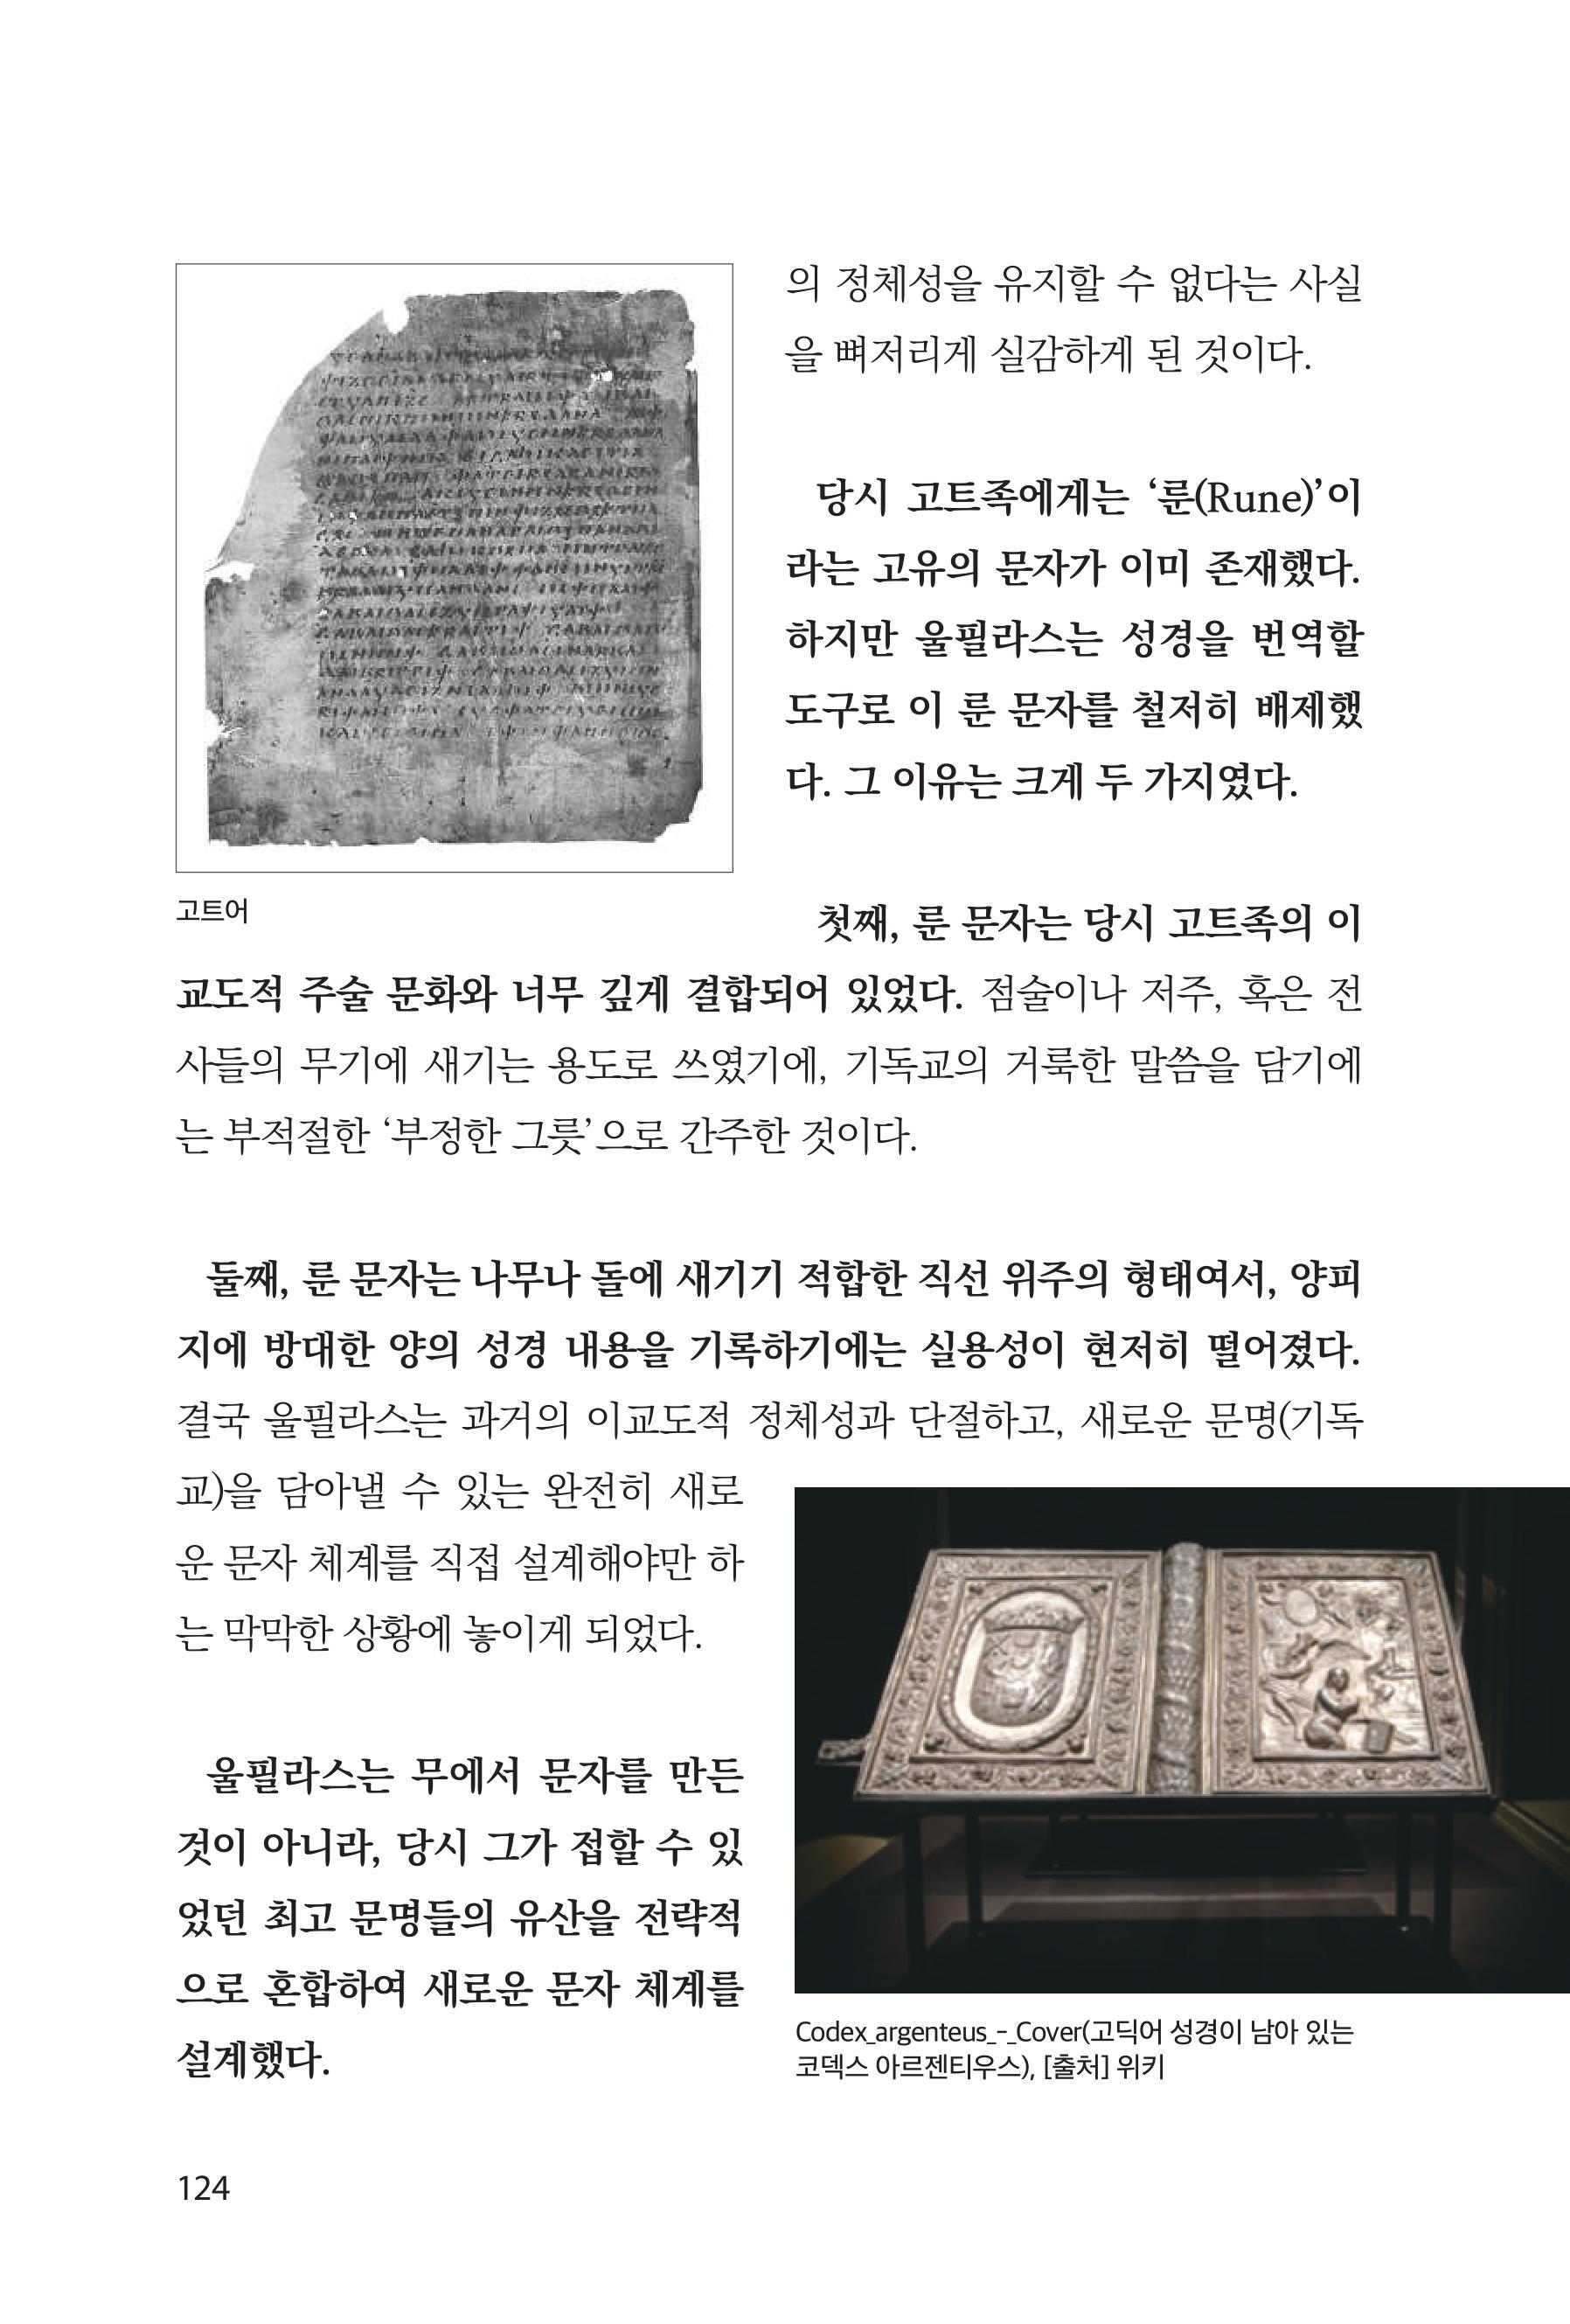 의 정체성을 유지할 수 없다는 사실
을 뼈저리게 실감하게 된 것이다.
당시 고트족에게는 ‘룬(Rune)’이
라는 고유의 문자가 이미 존재했다.
하지만 울필라스는 성경을 번역할
도구로 이 룬 문자를 철저히 배제했
다. 그 이유는 크게 두 가지였다.
고트어
첫째, 룬 문자는 당시 고트족의 이
교도적 주술 문화와 너무 깊게 결합되어 있었다. 점술이나 저주, 혹은 전
사들의 무기에 새기는 용도로 쓰였기에, 기독교의 거룩한 말씀을 담기에
는 부적절한 ‘부정한 그릇’으로 간주한 것이다.
둘째, 룬 문자는 나무나 돌에 새기기 적합한 직선 위주의 형태여서, 양피
지에 방대한 양의 성경 내용을 기록하기에는 실용성이 현저히 떨어졌다.
결국 울필라스는 과거의 이교도적 정체성과 단절하고, 새로운 문명(기독
교)을 담아낼 수 있는 완전히 새로
운 문자 체계를 직접 설계해야만 하
는 막막한 상황에 놓이게 되었다.
울필라스는 무에서 문자를 만든
것이 아니라, 당시 그가 접할 수 있
었던 최고 문명들의 유산을 전략적
으로 혼합하여 새로운 문자 체계를
설계했다.
Codex_argenteus_-_Cover(고딕어 성경이 남아 있는
코덱스 아르젠티우스), [출처] 위키
124